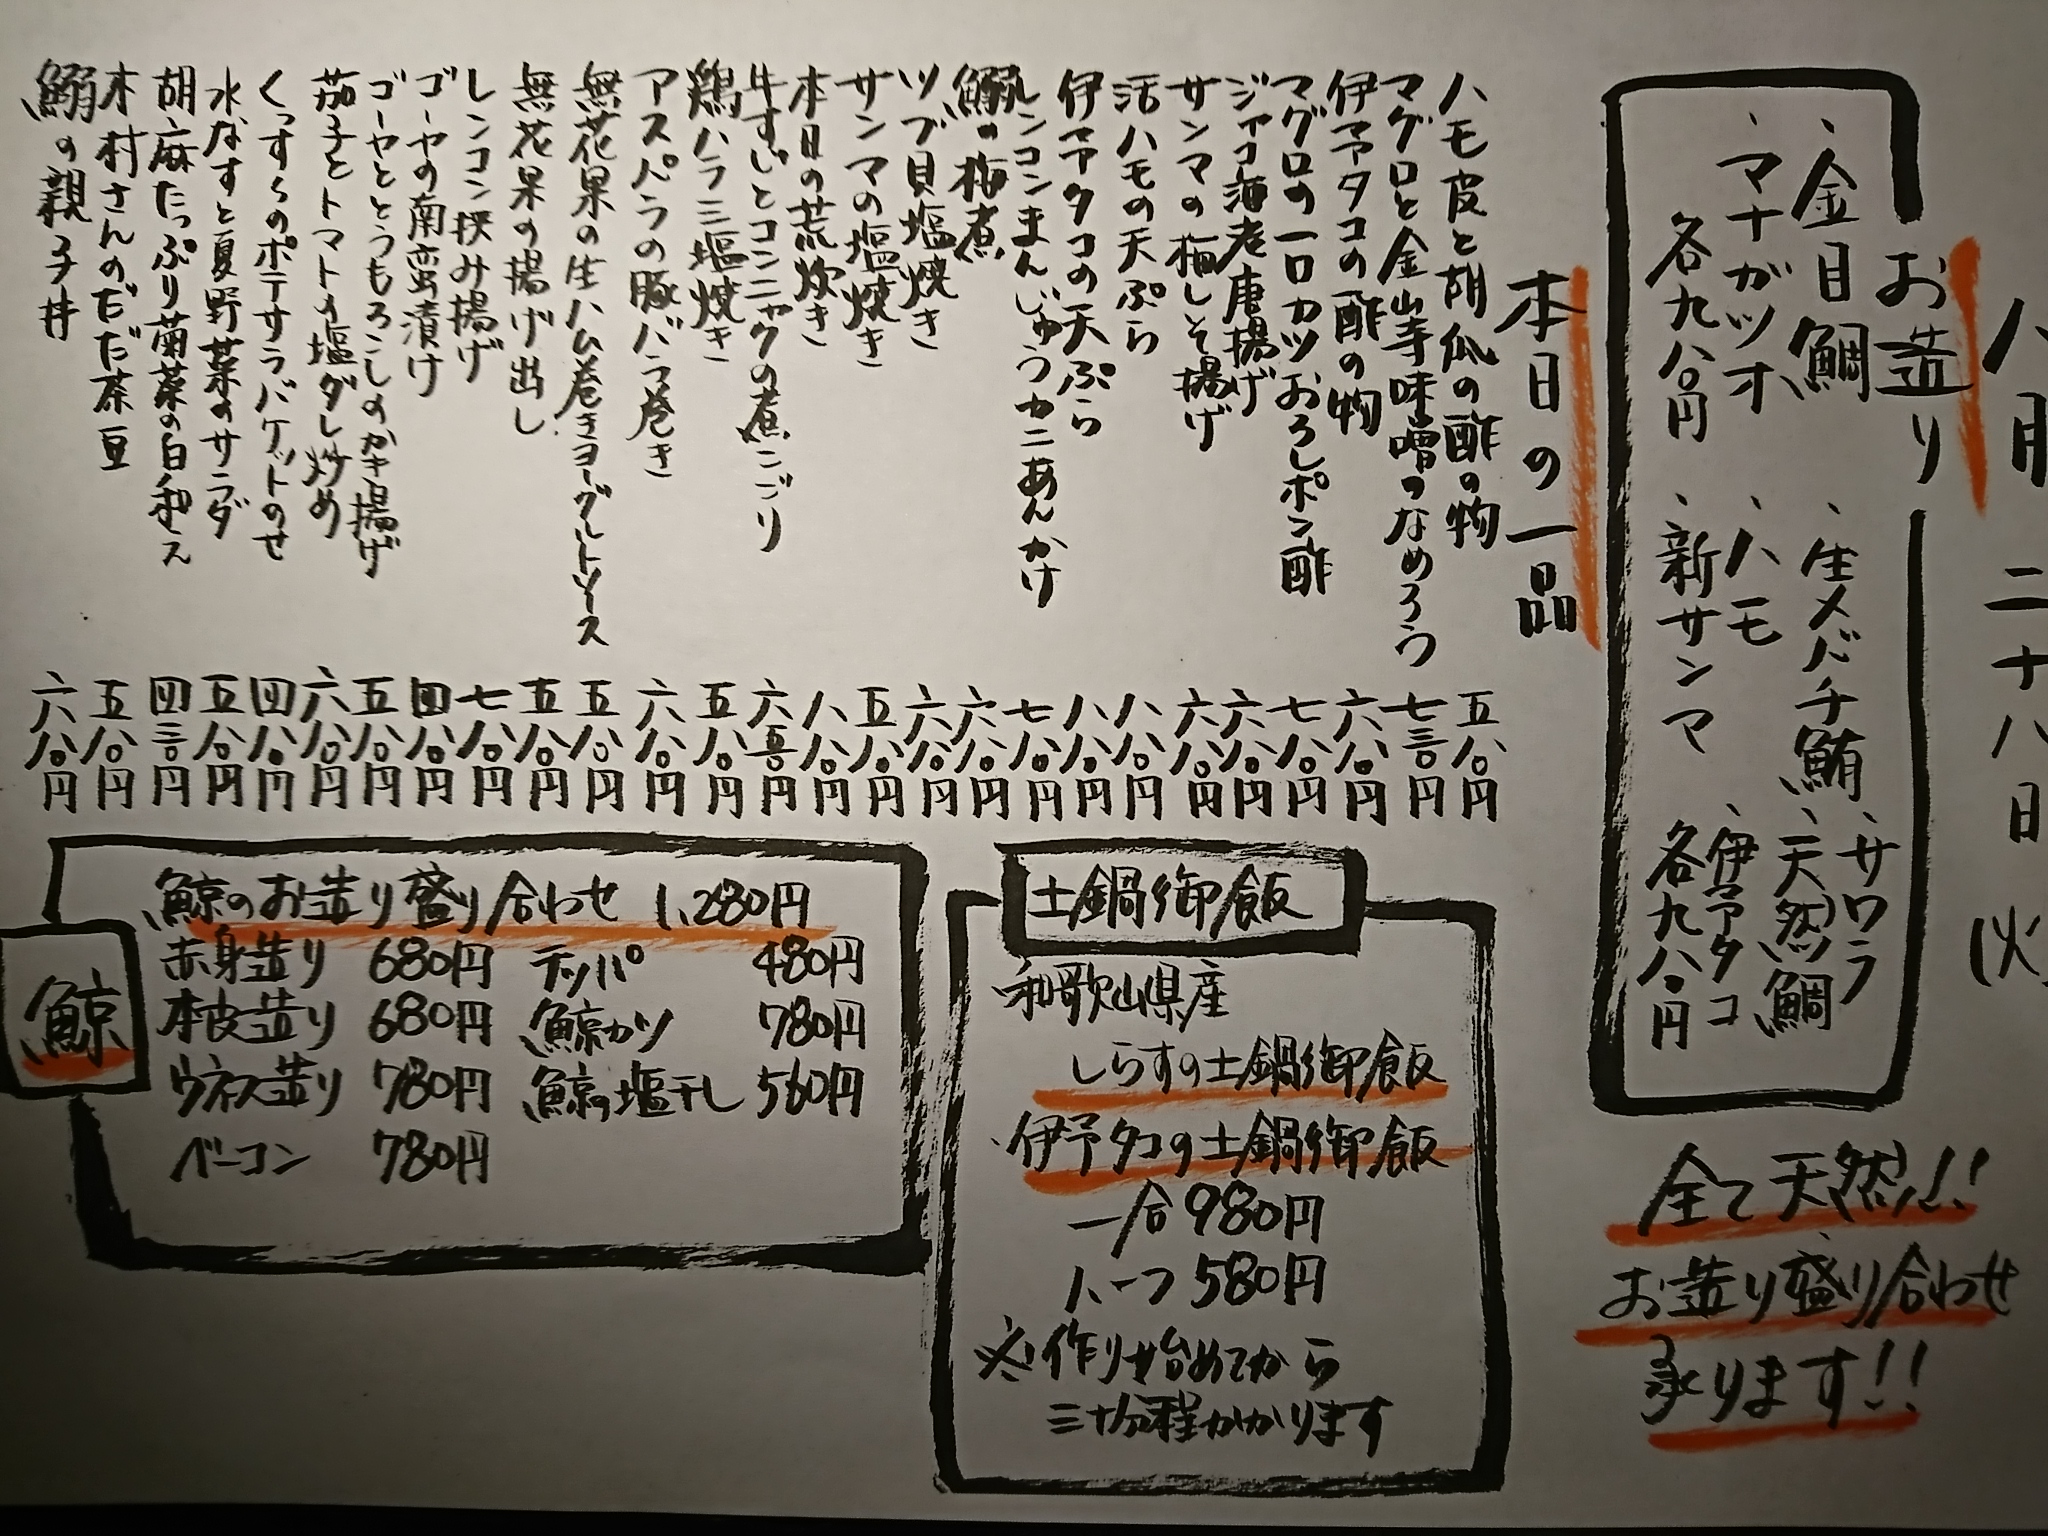 八月二十八日(火)
お造り
、金目鯛
、生メバチ鮪
、サワラ
、マナガツオ
、ハモ
、天然鯛
各九八〇円
、新サンマ
、伊予タコ
各九八〇円
全て天然!!
お造り盛り合わせ
承ります!!
本日の一品
ハモ皮と胡瓜の酢の物 五八〇円
マグロと金山寺味噌のなめろう 七三〇円
伊予タコの酢の物 六八〇円
マグロの一口カツおろしポン酢 七八〇円
ジャコ海老唐揚げ 六八〇円
サンマの梅しそ揚げ 六八〇円
活ハモの天ぷら 八八〇円
伊予タコの天ぷら 八八〇円
レンコンまんじゅうカニあんかけ 七八〇円
鰯の梅煮 六八〇円
ツブ貝塩焼き 六八〇円
サンマの塩焼き 五八〇円
本日の荒炊き 八八〇円
牛すじとコンニャクの煮こごり 六五〇円
鶏ハラミ塩焼き 五八〇円
アスパラの豚バラ巻き 六八〇円
無花果の生ハム巻きヨーグルトソース 五八〇円
無花果の揚げ出し 五八〇円
レンコン挟み揚げ 七八〇円
ゴーヤの南蛮漬け 四八〇円
ゴーヤととうもろこしのかき揚げ 五八〇円
茄子とトマトの塩ダレ炒め 六八〇円
くっすぅのポテサラバケットのせ 四八〇円
水なすと夏野菜のサラダ 五八〇円
胡麻たっぷり菊菜の白和え 四三〇円
木村さんのだだ茶豆 五八〇円
鰯の親子丼 六八〇円
土鍋御飯
和歌山県産
しらすの土鍋御飯
・伊予タコの土鍋御飯
一合 980円
ハーフ 580円
※作り始めてから
三十分程かかります
鯨
鯨のお造り盛り合わせ 1,280円
赤身造り 680円 テッパ 480円
本皮造り 680円 鯨カツ 780円
ウネス造り 780円 鯨の塩干し 560円
ベーコン 780円